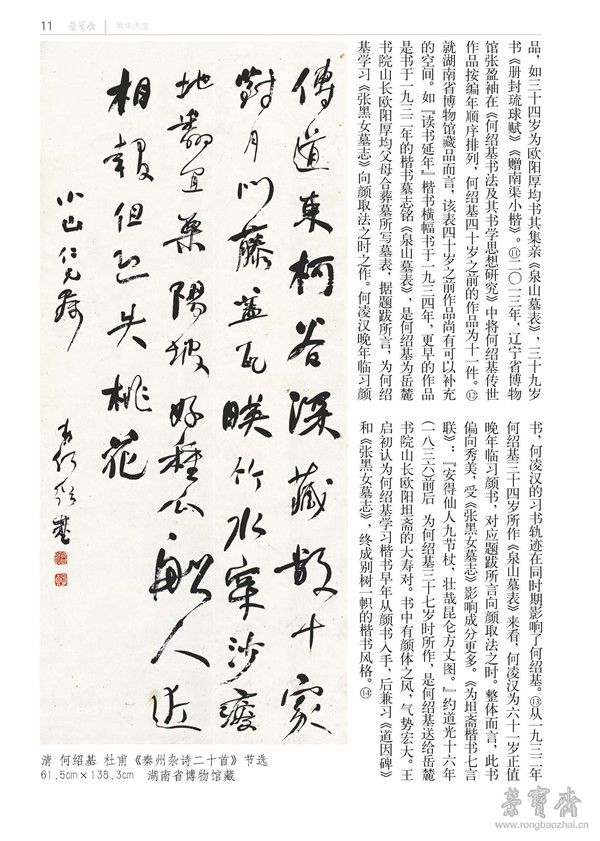 11 荣宝斋
品，如三十四岁为欧阳厚均书其集亲《泉山墓表》，三十九岁
书《册封琉球赋》《赠南渠小楷》。⑪二〇一三年，辽宁省博物
馆张盈袖在《何绍基书法及其书学思想研究》中将何绍基传世
作品按编年顺序排列，何绍基四十岁之前的作品为十一件。⑫
就湖南省博物馆藏品而言，该表四十岁之前作品尚有可以补充
的空间。如『读书延年』楷书横幅书于一九三四年，更早的作品
是书于一九三二年的楷书墓志铭《泉山墓表》，是何绍基为岳麓
书院山长欧阳厚均父母合葬墓所写墓表，据题跋所言，为何绍
基学习《张黑女墓志》向颜取法之时之作。何凌汉晚年临习颜
书，何凌汉的习书轨迹在同时期影响了何绍基。⑬从一九三二年
何绍基三十四岁所作《泉山墓表》来看，何凌汉为六十一岁正值
晚年临习颜书，对应题跋所言向颜取法之时。整体而言，此书
偏向秀美，受《张黑女墓志》影响成分更多。《为坦斋楷书七言
联》：『安得仙人九节杖，壮哉昆仑方丈图。』约道光十六年
（一八三六）前后，为何绍基三十七岁时所作，是何绍基送给岳麓
书院山长欧阳坦斋的大寿对。书中有颜体之风，气势宏大。王
启初认为何绍基学习楷书早年从颜书入手，后兼习《道因碑》
和《张黑女墓志》，终成别树一帜的楷书风格。⑭
傳道東柯谷深藏數十家
對月門藤蓋瓦暎竹水穿沙瘦
地翻宜粟陽坡好種瓜船人近
相報但恐失桃花
小山仁兄属
弟何绍基
清 何绍基 杜甫《秦州杂诗二十首》节选
61.5cm×138.3cm 湖南省博物馆藏
荣宝斋
www.rongbaozhai.cn